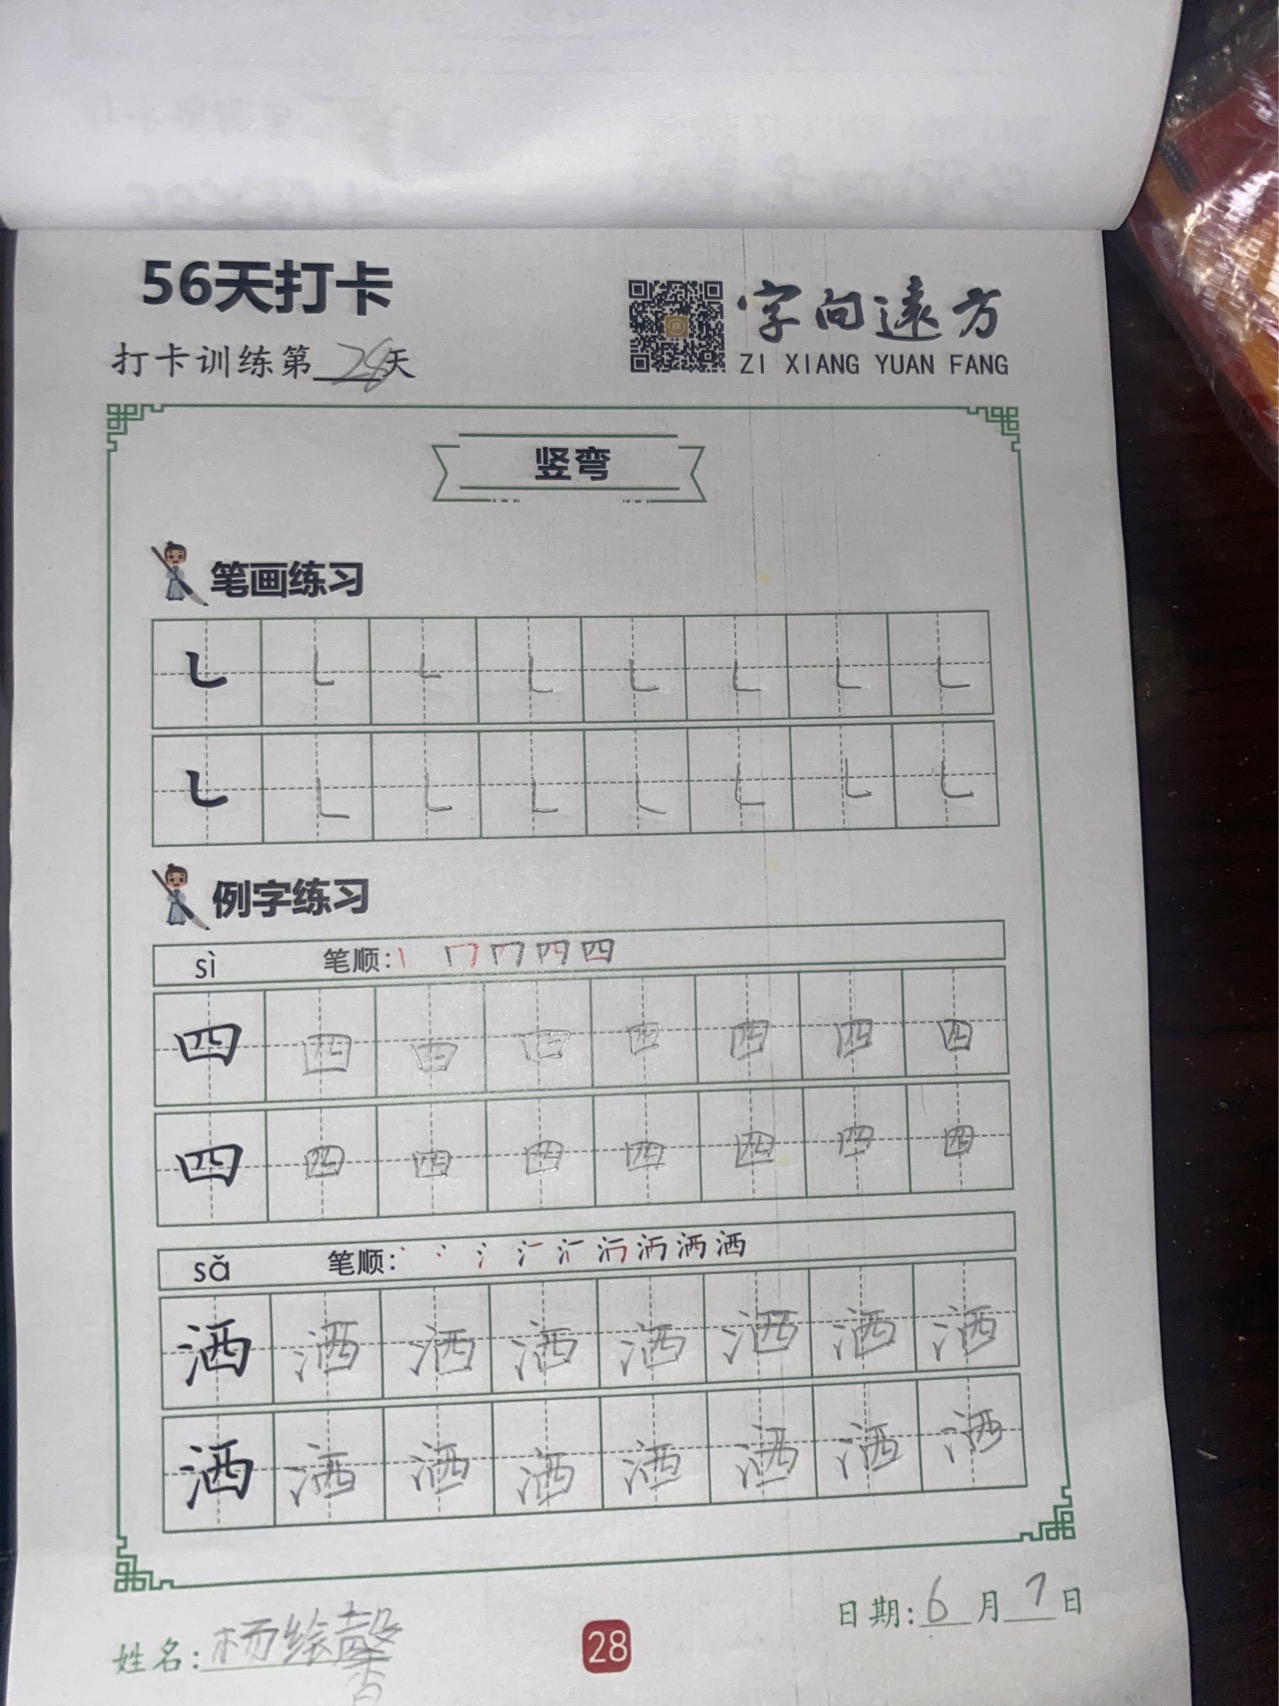 56天打卡
字向遠方
打卡训练第28天
ZI XIANG YUAN FANG
竖弯
笔画练习
㇄ ㇄ ㇄ ㇄ ㇄ ㇄ ㇄ ㇄
㇄ ㇄ ㇄ ㇄ ㇄ ㇄ ㇄ ㇄
例字练习
sì 笔顺: 四
四 四 四 四 四 四 四 四
四 四 四 四 四 四 四 四
sǎ 笔顺: 洒
洒 洒 洒 洒 洒 洒 洒 洒
洒 洒 洒 洒 洒 洒 洒 洒
日期:6月7日
姓名:杨绘馨
28